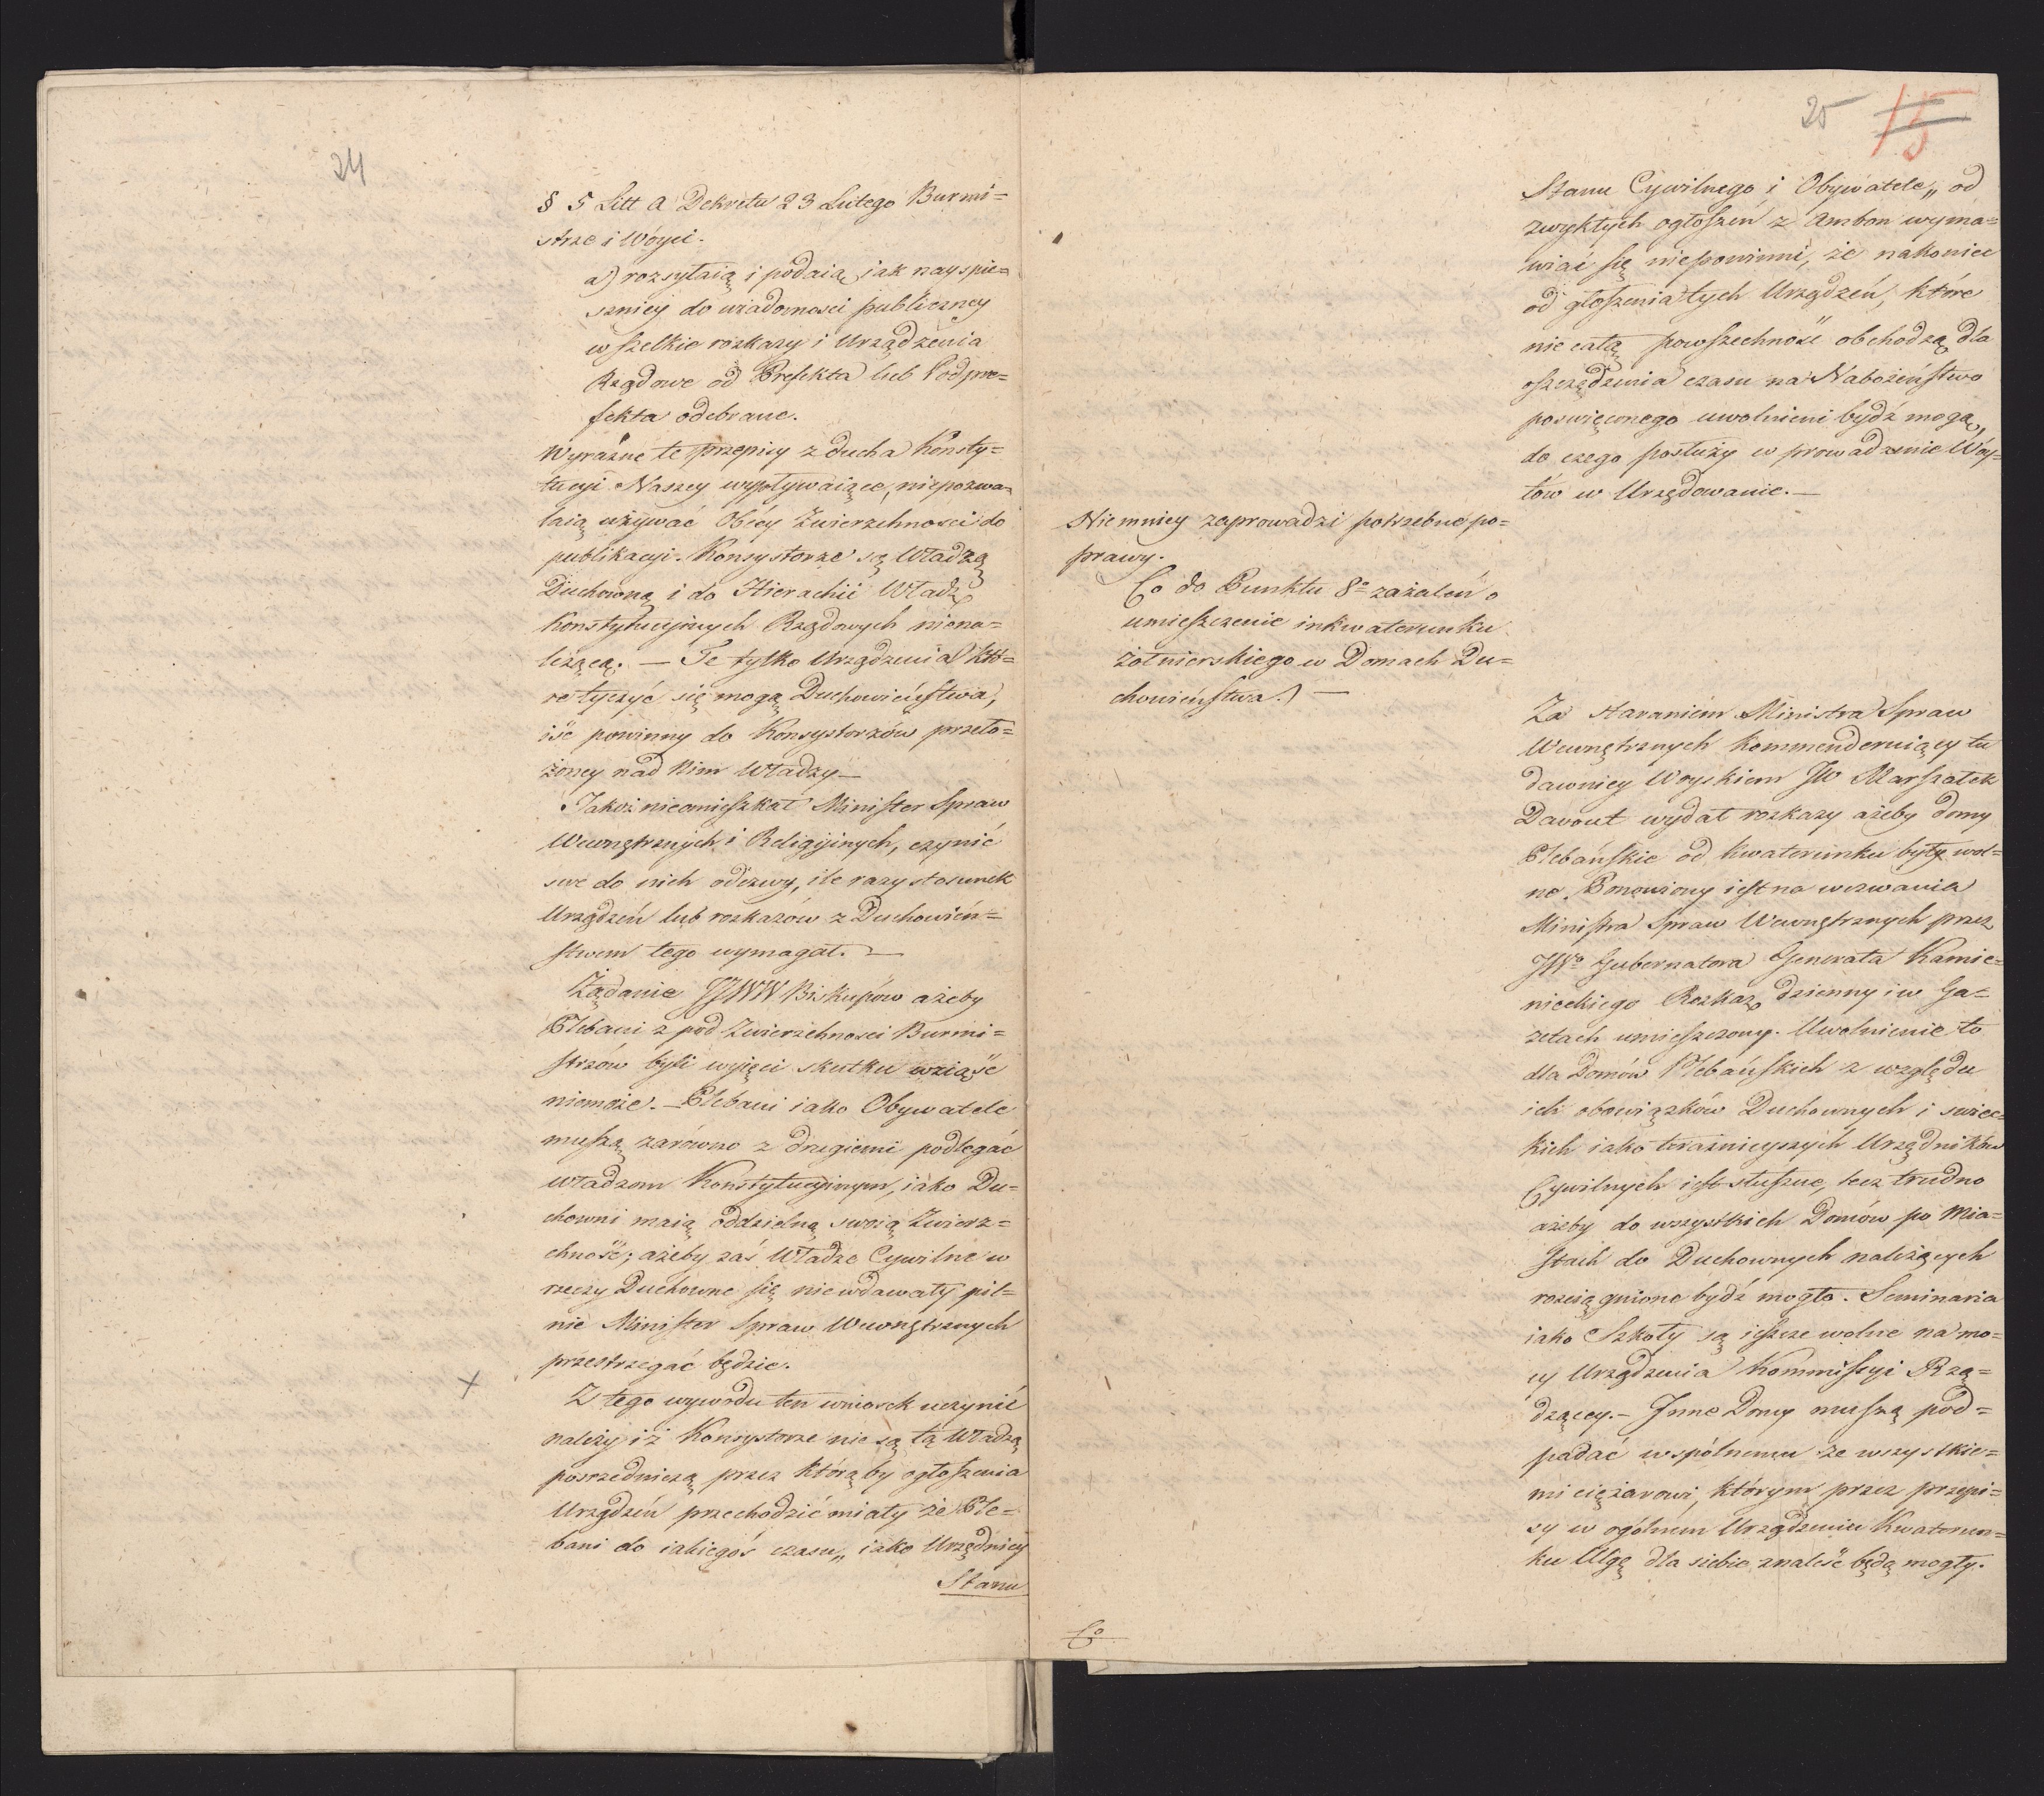 24
§ 5 Litt a Dekretu 23 Lutego Burmi=
strze i Wóyci.
a) rozsyłaią i podaią iak nayspie=
szniey do wiadomosci publiczney
wszelkie rozkazy i Urządzenia
Rządowe od Prefekta lub Podpre=
fekta odebrane.
Wyraźne te przepisy z ducha Konsty=
tucyi Naszey wypływaiące, niepozwa=
laią używać Obcey Zwierzchnosci do
publikacyi. Konsystorze są Władzą
Duchowną i do Hierachii Władz
Konstytucyinych Rządowych niena=
leżącą. — Te tylko Urządzenia któ=
re tyczyć się mogą Duchowieństwa,
iść powinny do Konsystorzów przeło=
żoney nad Nim Władzy —
Jakoż nieomieszkał Minister Spraw
Wewnętrznych i Religiinych, czynić
swe do nich odezwy, ile razy stosunek
Urządzeń lub rozkazów z Duchowień=
stwem tego wymagał. —
Żądanie JJWW Biskupów ażeby
Plebani z pod Zwierzchnosci Burmi=
strzów byli wyięci skutku wziąść
niemoże. — Plebani iako Obywatele
muszą zarówno z drugiemi podlegać
władzom Konstytucyinym, iako Du=
chowni maią oddzielną swoią Zwierz=
chność; ażeby zaś Władze Cywilne w
rzeczy Duchowne się niewdawały pil=
nie Minister Spraw Wewnętrznych
przestrzegać będzie.
Z tego wywodu ten wniosek uczynić
należy iż Konsystorze nie są tą Władzą
posrzedniczą przez którąby ogłoszenia
Urządzeń przechodzić miały że Ple=
bani do iakiegoś czasu„ iako Urzędnicy
Stanu
25 15
Stanu Cywilnego i Obywatele„ od
zwykłych ogłoszeń z Ambon wyma=
wiać się niepowinni, że nakoniec
od głoszenia tych Urządzeń, które
nie całą powszechność obchodzą dla
oszczędzenia czasu na Nabożeństwo
poswięconego uwolnieni bydź mogą,
do czego posłuży w prowadzenie Wóy=
tów w Urzędowanie. —
Niemniey zaprowadzi potrzebne po=
prawy.
Co do Punktu 8º zażaleń o
umieszczenie inkwaterunku
żołnierskiego w Domach Du=
chowieństwa.) —
Za staraniem Ministra Spraw
Wewnętrznych Kommenderuiący tu
dawniey Woyskiem JW Marszałek
Davout wydał rozkazy ażeby domy
Plebańskie od Kwaterunku były wol=
ne. Ponowiony iest na wezwania
Ministra Spraw Wewnętrznych przez
JWº Gubernatora Generała Kamie=
nieckiego Rozkaz dzienny i w Ga=
zetach umieszczony. Uwolnienie to
dla Domów Plebańskich z względu
ich obowiązków Duchownych i swiec=
kich iako teraźnieyszych Urzędników
Cywilnych iest słuszne, lecz trudno
ażeby do wszystkich Domów po Mia=
stach do Duchownych należących
rozciągnione bydź mogło. Seminaria
iako Szkoły są ieszcze wolne na mo=
cy Urządzenia Kommissyi Rzą=
dzącey. — Inne Domy muszą pod=
padać wspólnemu ze wszystkie=
mi ciężarowi, którym przez przepi=
sy w ogólnem Urządzeniu Kwaterun=
ku Ulgę dla siebie znaleść będą mogły.
Co